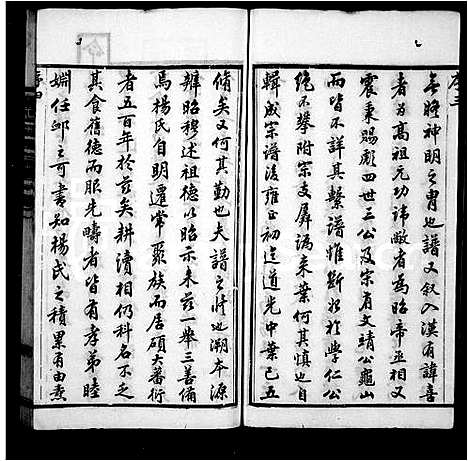 序三
無賸神明之胄也譜又叙入漢有諱喜
者為高祖元功諱敞者為昭帝丞相又
震秉賜彪四世三公及宗有文靖公龜山
而皆不詳其繫譜惟斷好於學仁公
絕不攀附宗支屏漏来葉何其慎也自
輯成宗譜後雍正初迄道光中葉已五
脩矣又何其勤也夫譜之將也溯本源
辨昭穆述祖德以昭示来兹一舉三善備
焉楊氏自明遷常聚族而居碩大蕃衍
者五百年於兹矣耕讀相仍科名不乏
其食舊德而服先疇者皆有孝弟睦
婣任邺之可書知楊氏之積累有由来
序四